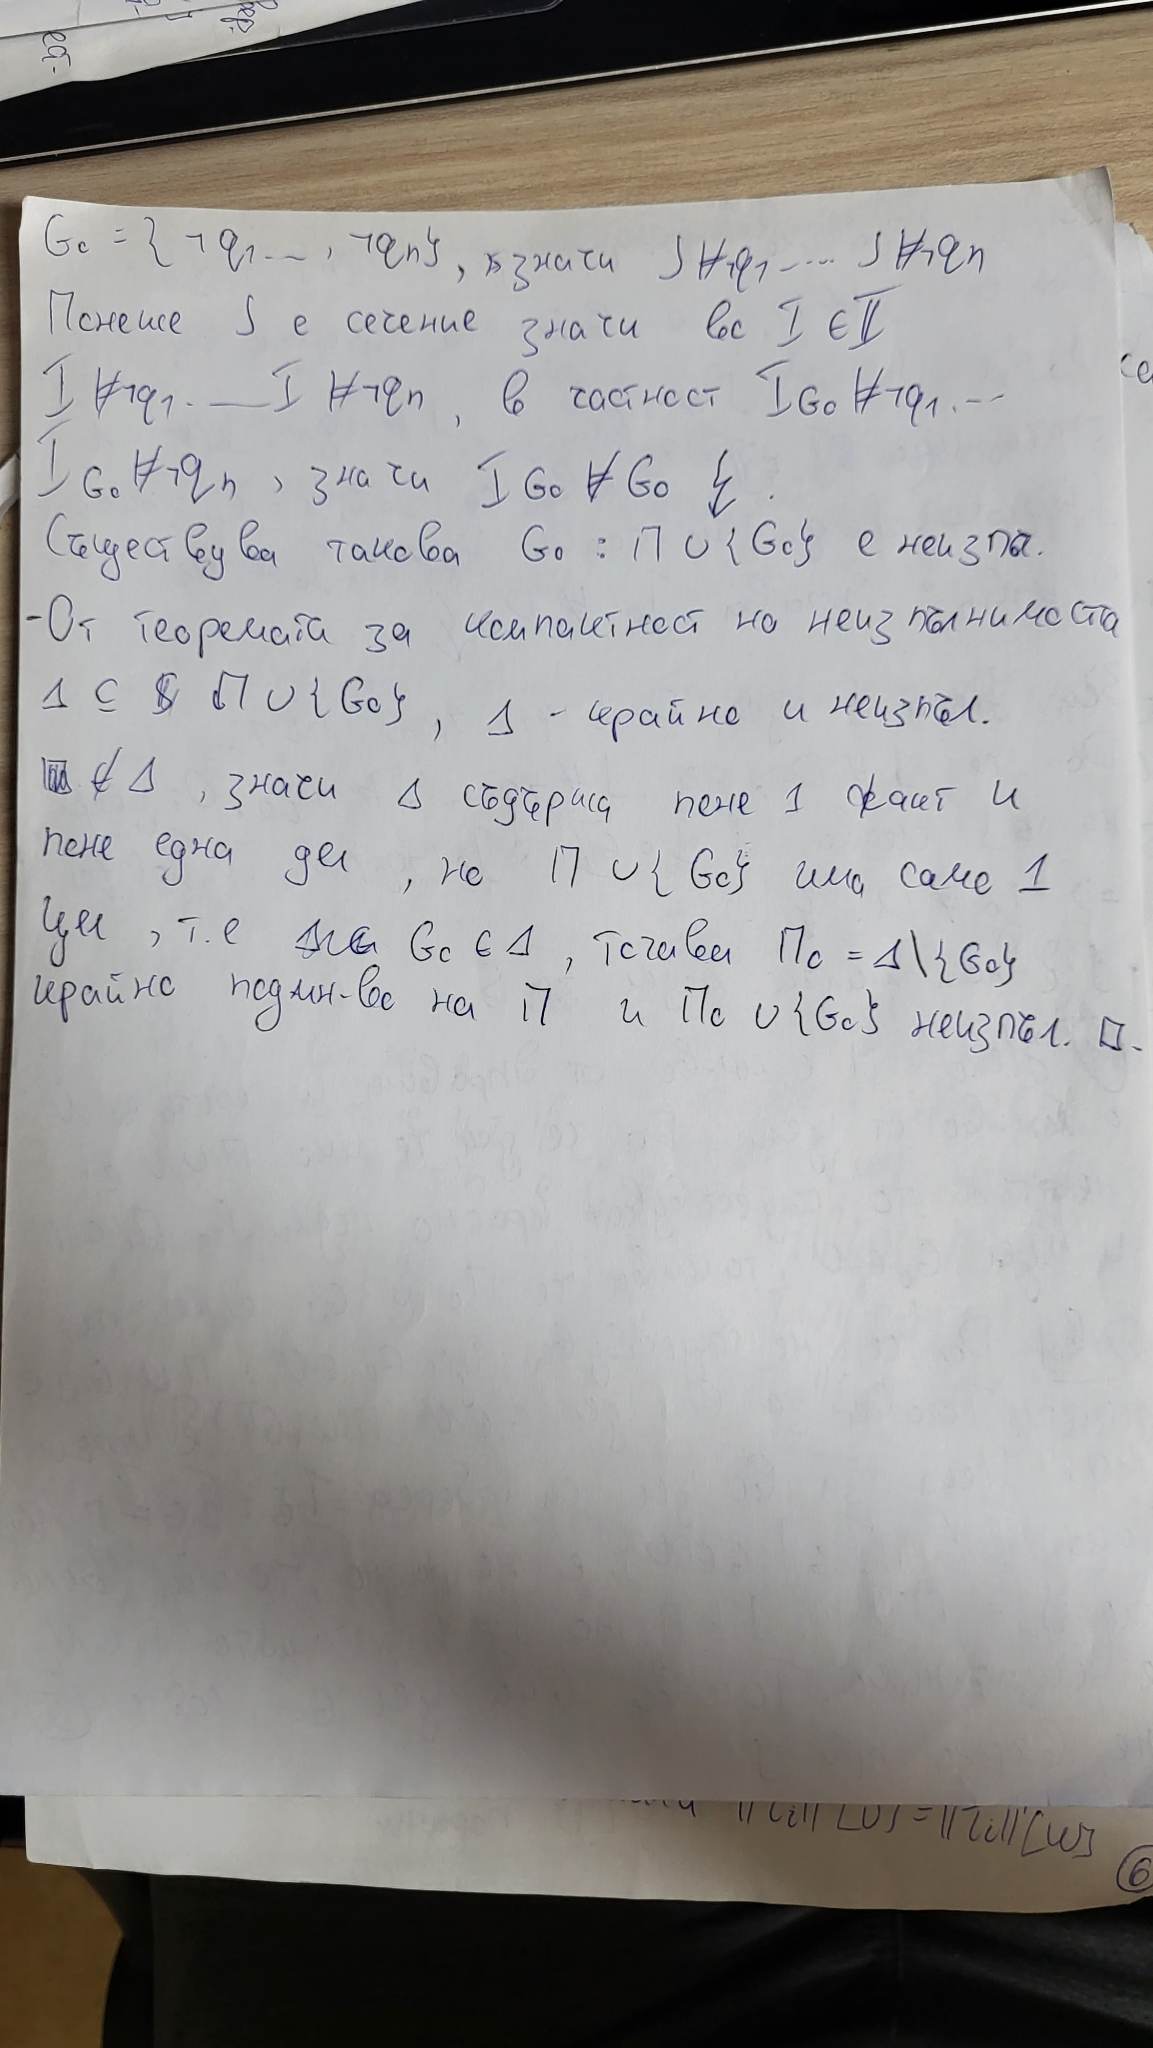 G₀ = {¬q₁..., ¬qₙ}, значи S⊭¬q₁.... S⊭¬qₙ
Понеже S е сечение значи вс I ∈ 𝕀
I ⊭¬q₁....I ⊭¬qₙ, в частност I_G₀ ⊭¬q₁...
I_G₀ ⊭¬qₙ, значи I_G₀ ⊭ G₀ ↯.
Съществува такова G₀ : П ∪ {G₀} е неизпъл.
-От теоремата за компактност на неизпълнимостта
Δ ⊆ П ∪ {G₀}, Δ - крайно и неизпъл.
∉ Δ, значи Δ съдържа поне 1 факт и
поне една цел, но П ∪ {G₀} има само 1
цел, т.е G₀ ∈ Δ, тогава П₀ = Δ\{G₀}
крайно подмн-во на П и П₀ ∪ {G₀} неизпъл. □.
‖τᵢ‖[v] = ‖τᵢ‖[w]
6